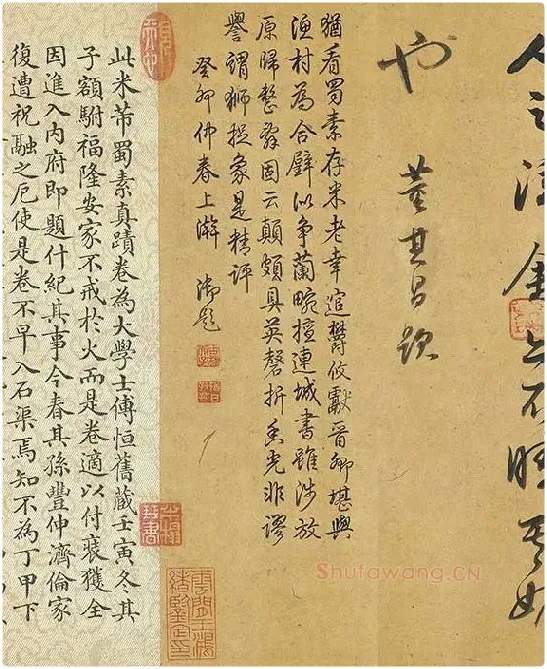 也
董其昌跋
猶看蜀素存米老幸逭鬱攸獻晉卿堪與
漁村為合璧以爭蘭畹擅連城書雖涉放
原歸整姿固云顛頗具英磬折香光非謬
譽謂獅捉象是精評
癸卯仲春上澣 御題
此米芾蜀素真蹟卷為大學士傅恒舊藏壬寅冬其
子額駙福隆安家不戒於火而是卷適以付裝獲全
因進入內府即題什紀其事今春其孫豐伸濟倫家
復遭祝融之厄使是卷不早入石渠焉知不為丁甲下
Shufawang.CN